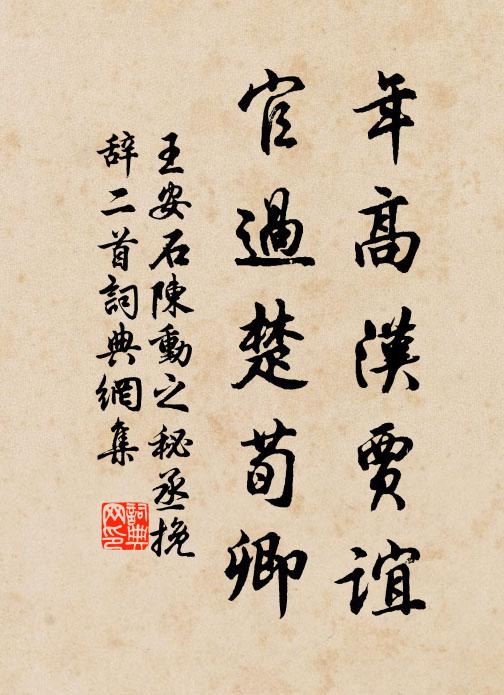 年高漢賈誼
官過楚荀卿
王安石陳動之秘丞挽
辞二首詞典網集
詞典网印